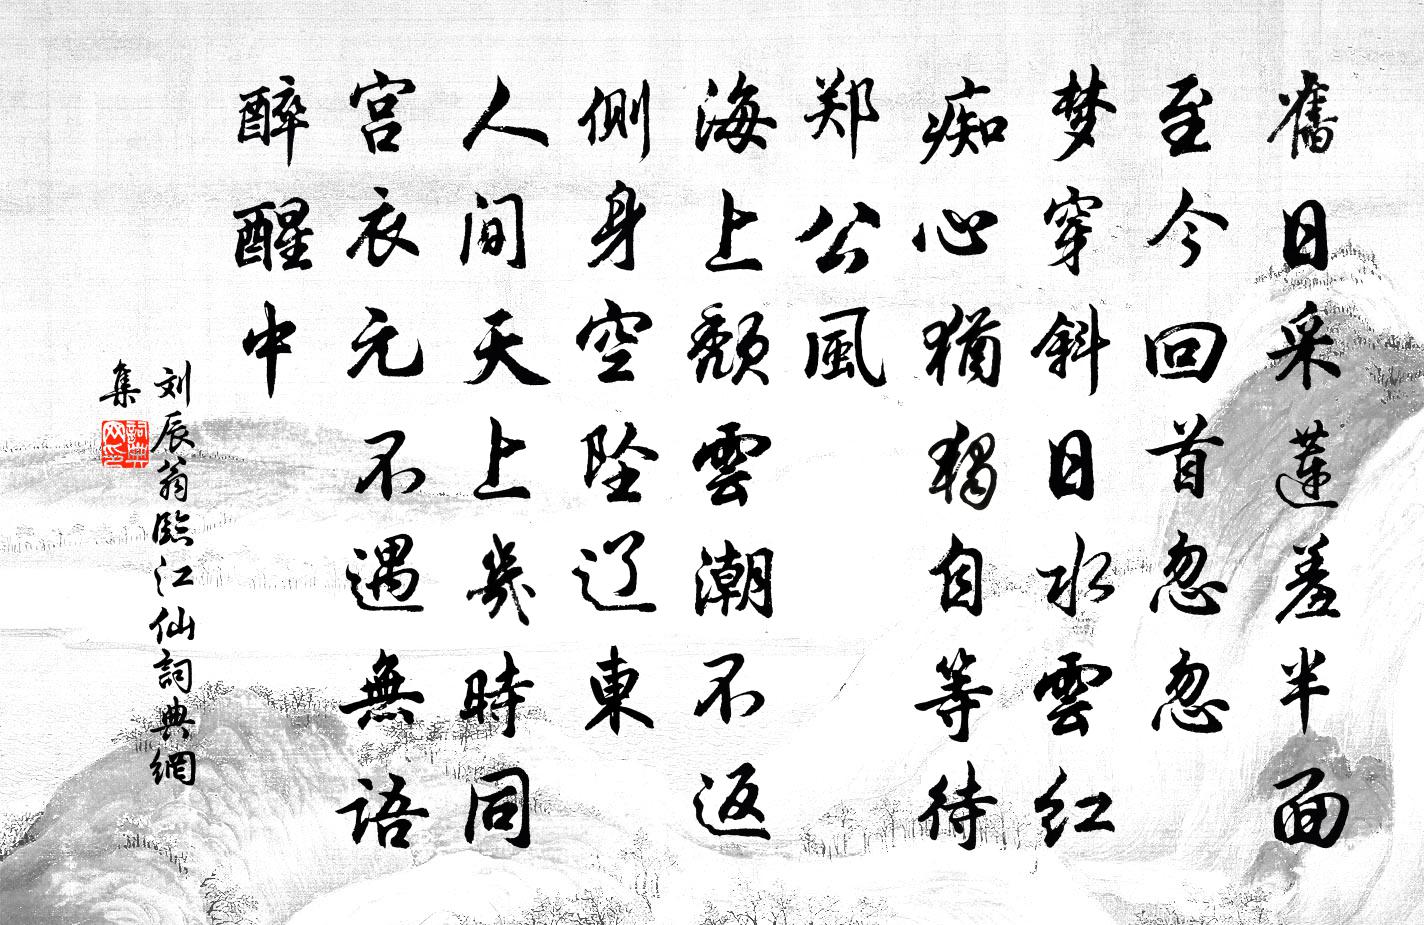 舊日采蓮羞半面
至今回首忽忽
梦穿斜日水雲红
痴心猶獨自等待
郑公風
海上颓雲潮不返
侧身空坠辽東
人间天上幾時同
宫衣元不遇無語
醉醒中
刘辰翁臨江仙詞典網
集
詞典
网